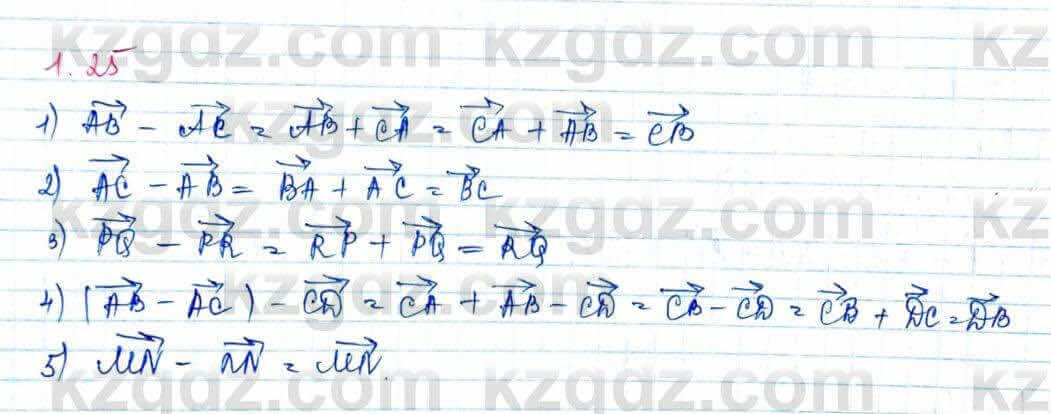 kzgdz.com kzgdz.com kz
1.25
1) $\overrightarrow{AB} - \overrightarrow{AC} = \overrightarrow{AB} + \overrightarrow{CA} = \overrightarrow{CA} + \overrightarrow{AB} = \overrightarrow{CB}$
2) $\overrightarrow{AC} - \overrightarrow{AB} = \overrightarrow{BA} + \overrightarrow{AC} = \overrightarrow{BC}$
kzgdz.com kzgdz.com kz
3) $\overrightarrow{PQ} - \overrightarrow{PR} = \overrightarrow{RP} + \overrightarrow{PQ} = \overrightarrow{RQ}$
4) $(\overrightarrow{AB} - \overrightarrow{AC}) - \overrightarrow{CD} = \overrightarrow{CA} + \overrightarrow{AB} - \overrightarrow{CD} = \overrightarrow{CB} - \overrightarrow{CD} = \overrightarrow{CB} + \overrightarrow{DC} = \overrightarrow{DB}$
5) $\overrightarrow{MN} - \overrightarrow{NN} = \overrightarrow{MN}.$
kzgdz.com kzgdz.com kz